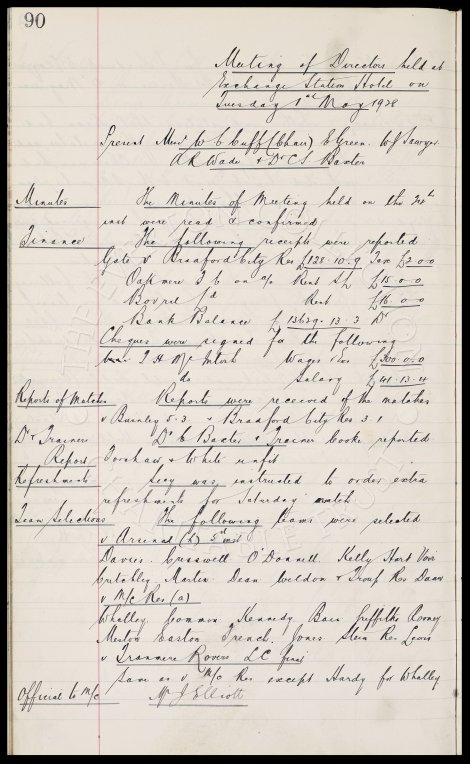 90
Meeting of Directors held at
Exchange Station Hotel on
Tuesday 1st May 1928
Present Messrs W C Cuff (Chair) E Green. W J Sawyer
A R Wade & Dr C S Baxter
Minutes The Minutes of Meeting held on the 24th
inst were read & confirmed
Finance The following receipts were reported
Gate v Bradford City Res £128.10.9 Tax £2.0.0
Oakmere on a/c Rent £15.0.0
Bovril Ld Rent £16.0.0
Bank Balance £13629.13.3 Dr
Cheques were signed for the following
T H McIntosh Wages £300.0.0
do Salary £41.13.4
Reports of Matches Reports were received of the matches
v Burnley 5.3 v Bradford City Res 3.1
Dr & Trainers Dr C Baxter & Trainer Cooke reported
Report Forshaw & White unfit
Refreshments Secy was instructed to order extra
refreshments for Saturday match
Team Selections The following teams were selected
v Arsenal (h) 5th inst
Davies. Cresswell O'Donnell. Kelly Hart Virr
Critchley Martin Dean Weldon & Troup Res
v M/c Res (a)
Whalley Common Kennedy Bain Griffiths Rooney
Meston Easton French. Jones Stein Res Lewis
v Tranmere Rovers LC final
Same as v M/c Res except Hardy for Whalley
Official to M/c Mr J Elliott